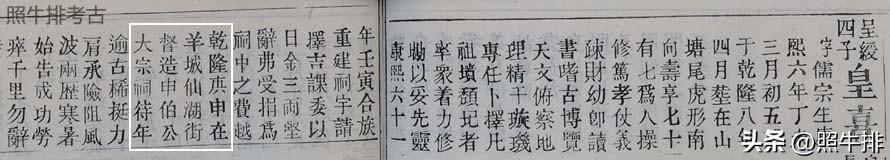 照牛排考古
呈綬
四子
皇喜
字儒宗生
熙六年丁
三月初五
于乾隆八年
四月塟在山
塘尾虎形南
向壽享七十
有七爲人操
修篤孝仗義
疎財幼卽讀
書喈古博覽
天文俯察地
理精干璇璣
專任卜擇凡
祖墳頽圮者
率衆着力修
拗以妥先靈
康熙六十一
年壬寅合族
重建祠宇請
擇吉課委以
日金三両堅
辭弗受捐爲
祠中之費越
乾隆庚申在
羊城仙湖街
督造申伯公
大宗祠待年
逾古稀挺力
肩承險阻風
波兩歷寒暑
始告成功勞
瘁千里勿辭
头条 @照牛排